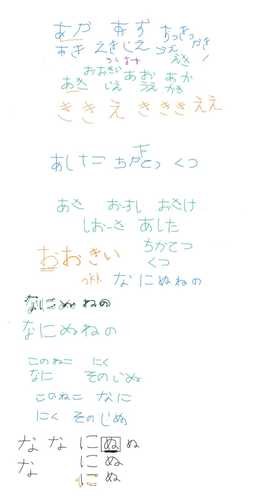 あか あす ちっさっ
あき えきじえ うえ かを
ちいさな えき
おおきい あお あか
あき じえ うえ かき
きき え ききき ええ
を
あした ちかてつ くつ
あさ おすし おさけ
しおーさ あした
おおきい ちかてつ
くつ
なにぬねの
なにぬねの
なにぬねの
このねこ にく
なに そのじぬ
このねこ なに
にく そのじぬ
な な に ぬ ぬ
な に ぬ
に ぬ